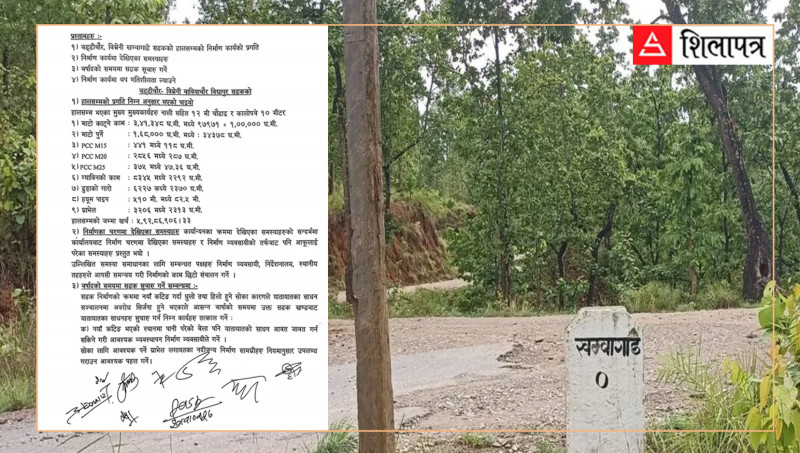 प्रस्तावहरु :-
१) चट्टीचौर, विश्रेनी खम्बागाडे सडकको हालसम्मको निर्माण कार्यको प्रगति
२) निर्माण कार्यमा देखिएका समस्याहरु
३) वर्षादको समयमा सडक सुचारु गर्ने
४) निर्माण कार्यमा थप गतिशीलता ल्याउने
१) हालसम्मको प्रगति निम्न अनुसार भएको पाइयो
हालसम्म भएका मुख्य मुख्यकार्यहरु नाली सहित १२ मी चौडाइ र कालोपत्रे १० मीटर
१) माटो काट्ने काम : ३,५१,३४८ घ.मी. मध्ये ९७९७१ + १,००,००० घ.मी.
२) माटो पुर्ने : १,६८,००० घ.मी. मध्ये : ३४३७८ घ.मी.
३) PCC M15 : ४४१ मध्ये ११८ घ.मी.
४) PCC M20 : २८५६ मध्ये २८७ घ.मी.
५) PCC M25 : ३७५ मध्ये ४७.३६ घ.मी.
६) ग्याविनको काम : ८३४५ मध्ये २२९२ घ.मी.
७) ढुङ्गाको गारो : ६२२७ मध्ये २३७० घ.मी.
८) ह्युम पाइप : ५१० मी. मध्ये ८२.५ मी.
९) ग्राभेल : ३२०६ मध्ये २३१३ घ.मी.
हालसम्मको जम्मा खर्च : ५,९२,८६,९०६।३३
२) निर्माणका चरणमा देखिएका समस्याहरु कार्यान्वयनका क्रममा देखिएका समस्याहरुको सन्दर्भमा
कार्यालयबाट निर्माण चरणमा देखिएका समस्याहरु र निर्माण व्यवसायीको तर्फबाट पनि आफूलाई
परेका समस्याहरु प्रस्तुत भयो ।
उल्लिखित समस्या समाधानका लागि सम्बन्धत पक्षहरु निर्माण व्यवसायी, निर्देशनालय, स्थानीय
तहहरुले आपसी समन्वय गरी निर्माणको काम छिटो संचालन गर्ने ।
३) वर्षादको समयमा सडक सुचारु गर्ने सम्बन्धमा :-
सडक निर्माणको क्रममा नयाँ कटिङ गर्दा धुलो तथा हिलो हुने सोका कारणले यातायातका साधन
सञ्चालनमा अवरोध सिर्जना हुने भएकाले आसन्न वर्षाको समयमा उक्त सडक खण्डबाट
यातायातका साधनहरु सुचारु गर्न निम्न कार्यहरु तत्काल गर्ने :
क) नयाँ कटिङ भएको स्थानमा पानी परेको बेला पनि यातायातको साधन आवत जावत गर्न
सकिने गरी आवश्यक व्यवस्थापन निर्माण व्यवसायीले गर्ने ।
सोका लागि आवश्यक पर्ने ग्राभेल लगायतका नदीजन्य निर्माण सामग्रीहरु नियमानुसार उपलब्ध
गराउन आवश्यक पहल गर्ने ।
शिलापत्र
खम्बागाडे
०